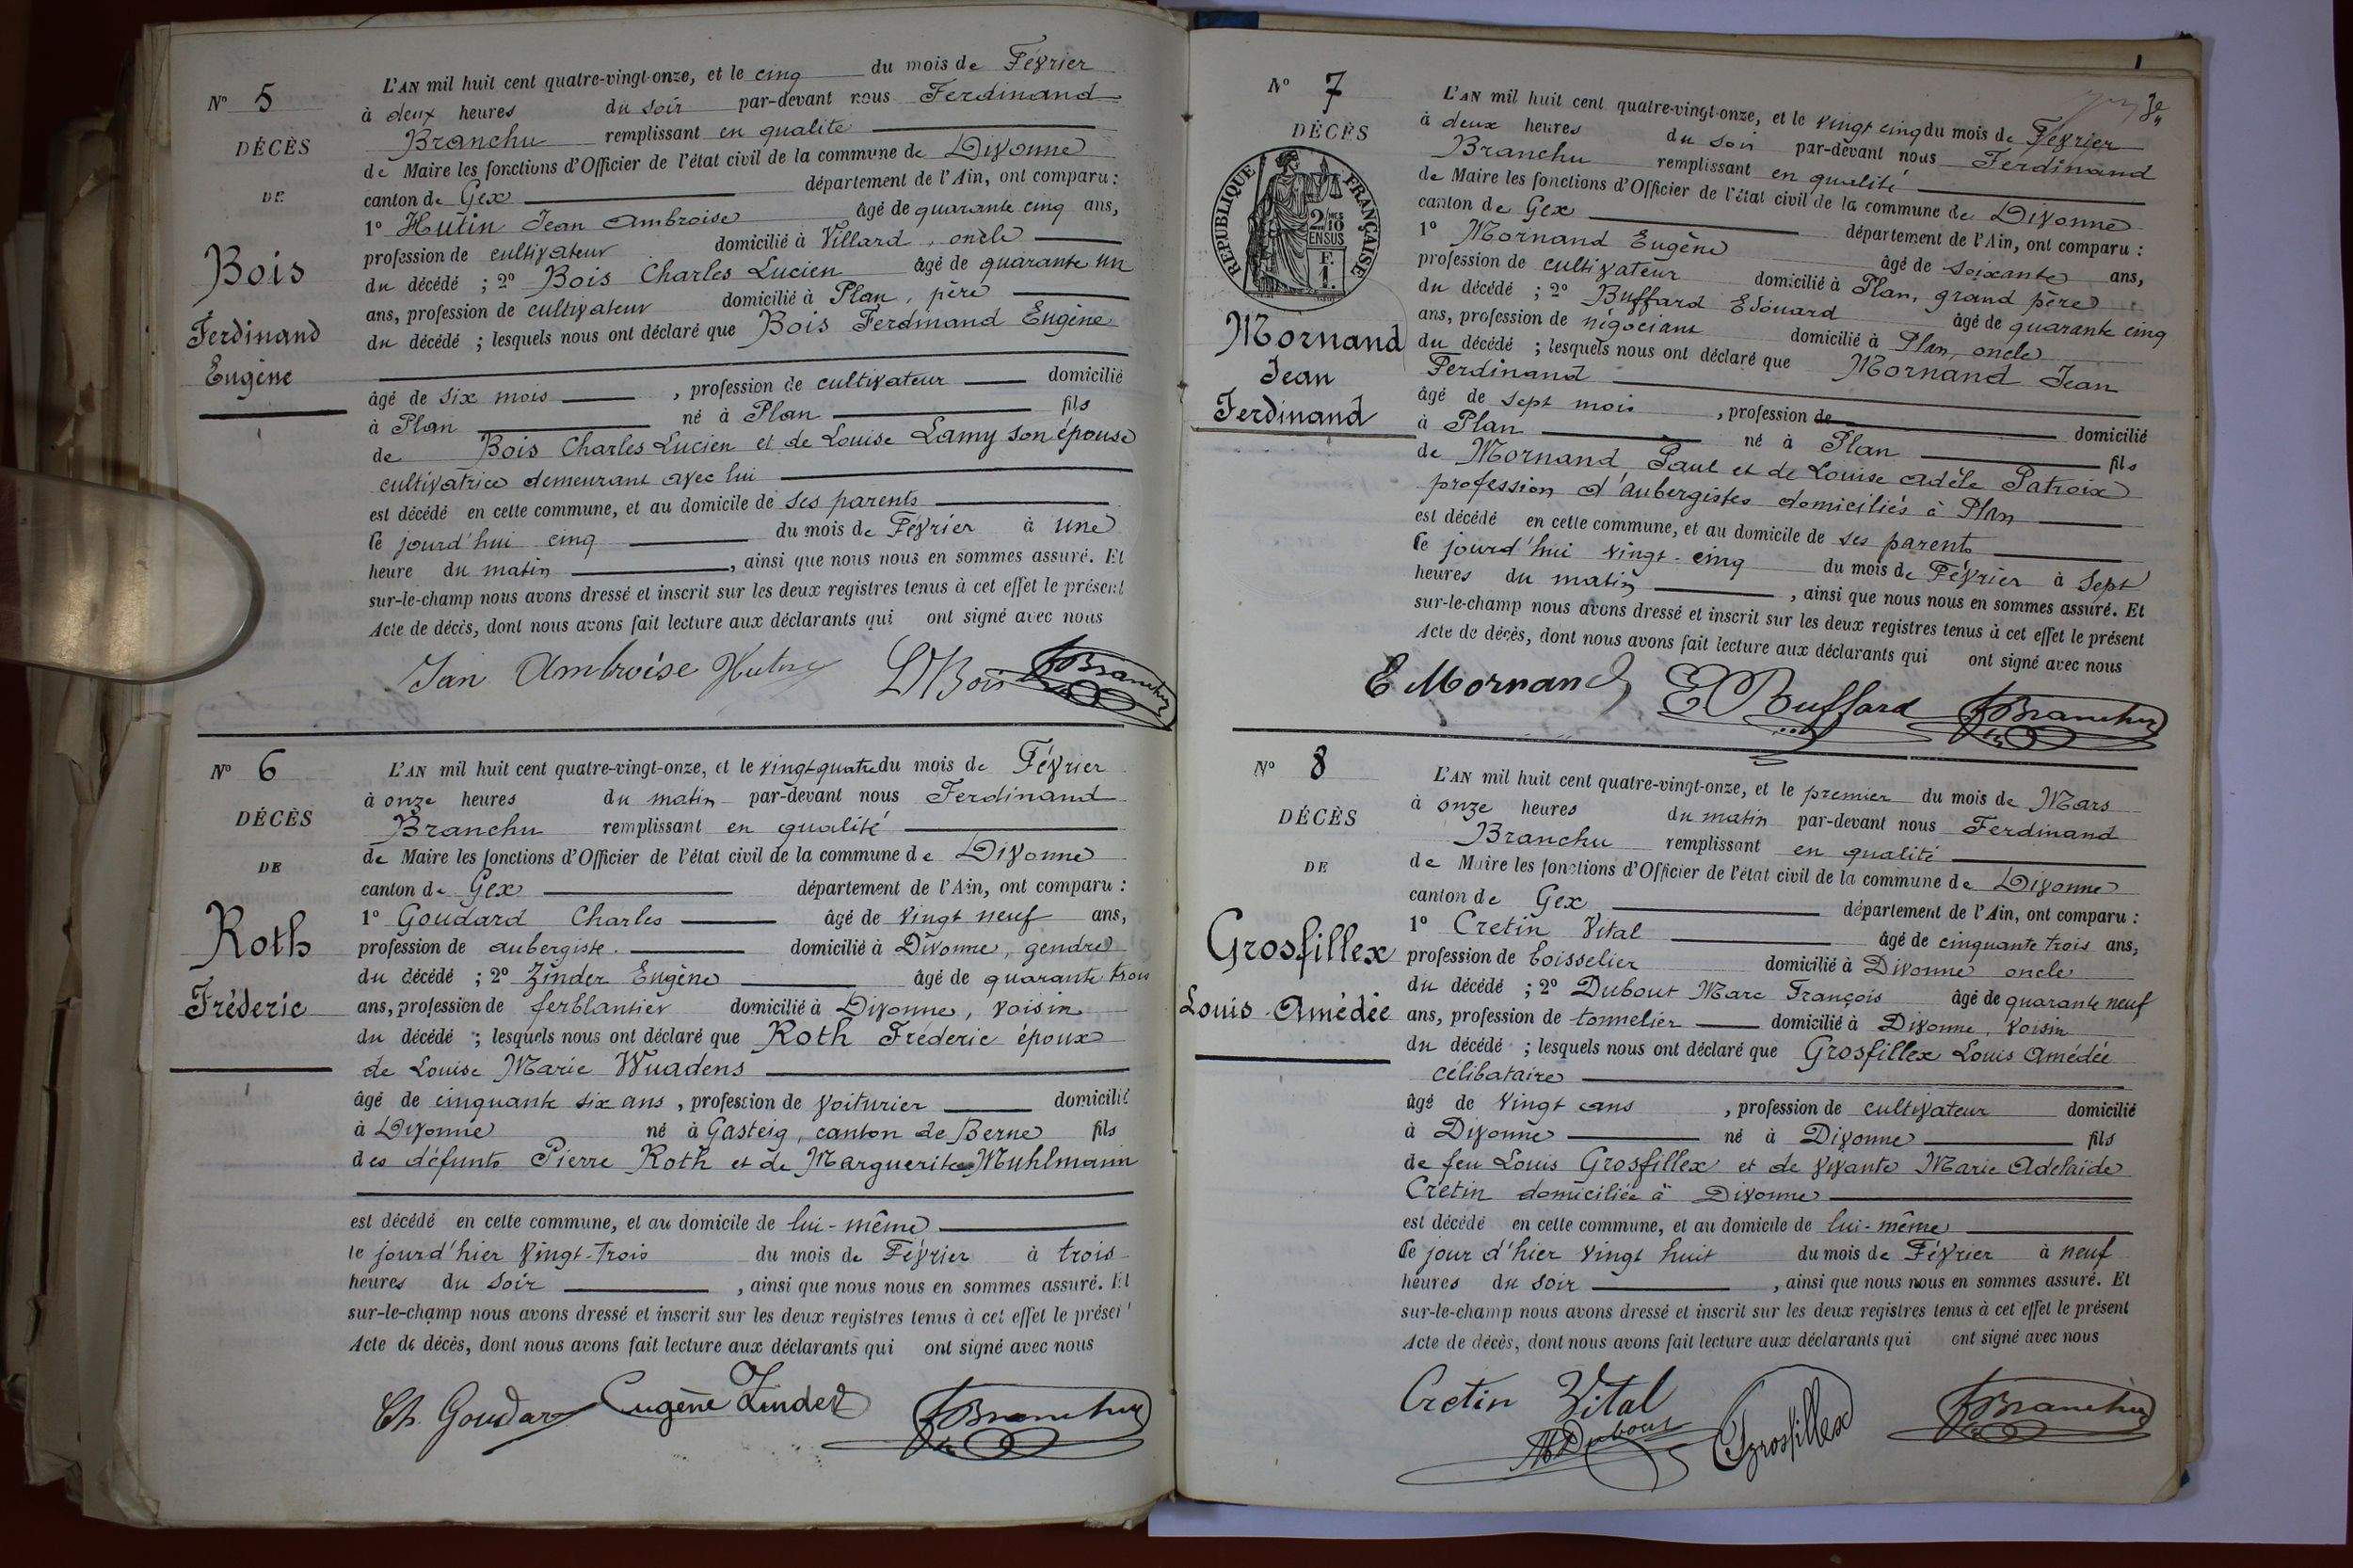 N° 5
DÉCÈS
DE
Bois
Ferdinand
Eugène
L'AN mil huit cent quatre-vingt-onze, et le cinq du mois de Février
à deux heures du soir par-devant nous Ferdinand
Branchu remplissant en qualité
de Maire les fonctions d'Officier de l'état civil de la commune de Divonne
canton de Gex département de l'Ain, ont comparu :
1° Hutin Jean Ambroise âgé de quarante cinq ans,
profession de cultivateur domicilié à Villard, oncle
du décédé ; 2° Bois Charles Lucien âgé de quarante un
ans, profession de cultivateur domicilié à Plan, père
du décédé ; lesquels nous ont déclaré que Bois Ferdinand Eugène
âgé de six mois , profession de cultivateur domicilié
à Plan né à Plan fils
de Bois Charles Lucien et de Louise Lamy son épouse
cultivatrice demeurant avec lui
est décédé en cette commune, et au domicile de ses parents
le jourd'hui cinq du mois de Février à une
heure du matin , ainsi que nous nous en sommes assuré. Et
sur-le-champ nous avons dressé et inscrit sur les deux registres tenus à cet effet le présent
Acte de décès, dont nous avons fait lecture aux déclarants qui ont signé avec nous
Jan Ambroise Hutin LBois FBranchu
N° 6
DÉCÈS
DE
Roth
Fréderic
L'AN mil huit cent quatre-vingt-onze, et le vingt quatre du mois de Février
à onze heures du matin par-devant nous Ferdinand
Branchu remplissant en qualité
de Maire les fonctions d'Officier de l'état civil de la commune de Divonne
canton de Gex département de l'Ain, ont comparu :
1° Goudard Charles âgé de vingt neuf ans,
profession de aubergiste. domicilié à Divonne, gendre
du décédé ; 2° Zinder Eugène âgé de quarante trois
ans, profession de ferblantier domicilié à Divonne, voisin
du décédé ; lesquels nous ont déclaré que Roth Fréderic époux
de Louise Marie Wuadens
âgé de cinquante six ans , profession de voiturier domicilié
à Divonne né à Gasteig, canton de Berne fils
des défunts Pierre Roth et de Marguerite Muhlmann
est décédé en cette commune, et au domicile de lui-même
le jourd'hier vingt-trois du mois de Février à trois
heures du soir , ainsi que nous nous en sommes assuré. Et
sur-le-champ nous avons dressé et inscrit sur les deux registres tenus à cet effet le présent
Acte de décès, dont nous avons fait lecture aux déclarants qui ont signé avec nous
Ch. Goudard Eugène Zinder FBranchu
N° 7
DÉCÈS
RÉPUBLIQUE FRANÇAISE
2/10 MES
EN SUS
F.
1.
Mornand
Jean
Ferdinand
L'AN mil huit cent quatre-vingt-onze, et le vingt cinq du mois de Février
à deux heures du soir par-devant nous Ferdinand
Branchu remplissant en qualité
de Maire les fonctions d'Officier de l'état civil de la commune de Divonne
canton de Gex département de l'Ain, ont comparu :
1° Mornand Eugène âgé de soixante ans,
profession de cultivateur domicilié à Plan, grand père
du décédé ; 2° Buffard Edouard âgé de quarante cinq
ans, profession de négociant domicilié à Plan, oncle
du décédé ; lesquels nous ont déclaré que Mornand Jean
Ferdinand
âgé de sept mois , profession de domicilié
à Plan né à Plan fils
de Mornand Paul et de Louise Adèle Patroix
profession d'aubergistes domiciliés à Plan
est décédé en cette commune, et au domicile de ses parents
le jourd'hui vingt-cinq du mois de Février à sept
heures du matin , ainsi que nous nous en sommes assuré. Et
sur-le-champ nous avons dressé et inscrit sur les deux registres tenus à cet effet le présent
Acte de décès, dont nous avons fait lecture aux déclarants qui ont signé avec nous
E Mornand E Buffard FBranchu
N° 8
DÉCÈS
DE
Grosfillex
Louis Amédée
L'AN mil huit cent quatre-vingt-onze, et le premier du mois de Mars
à onze heures du matin par-devant nous Ferdinand
Branchu remplissant en qualité
de Maire les fonctions d'Officier de l'état civil de la commune de Divonne
canton de Gex département de l'Ain, ont comparu :
1° Cretin Vital âgé de cinquante trois ans,
profession de boisselier domicilié à Divonne oncle
du décédé ; 2° Dubout Marc François âgé de quarante neuf
ans, profession de tonnelier domicilié à Divonne, voisin
du décédé ; lesquels nous ont déclaré que Grosfillex Louis Amédée
célibataire
âgé de vingt ans , profession de cultivateur domicilié
à Divonne né à Divonne fils
de feu Louis Grosfillex et de vivante Marie Adelaïde
Cretin domiciliée à Divonne
est décédé en cette commune, et au domicile de lui-même
le jour d'hier vingt huit du mois de Février à neuf
heures du soir , ainsi que nous nous en sommes assuré. Et
sur-le-champ nous avons dressé et inscrit sur les deux registres tenus à cet effet le présent
Acte de décès, dont nous avons fait lecture aux déclarants qui ont signé avec nous
Cretin Vital
Dubout Grosfillex FBranchu